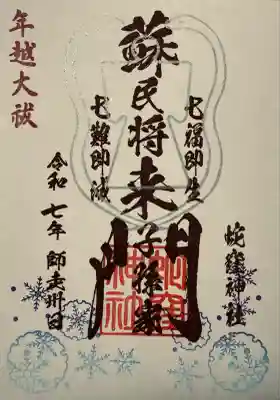 七福即生
蛇窪神社
蘇民将来子孫家門
蛇窪神社
七難即滅
令和七年 師走卅日
年越大祓